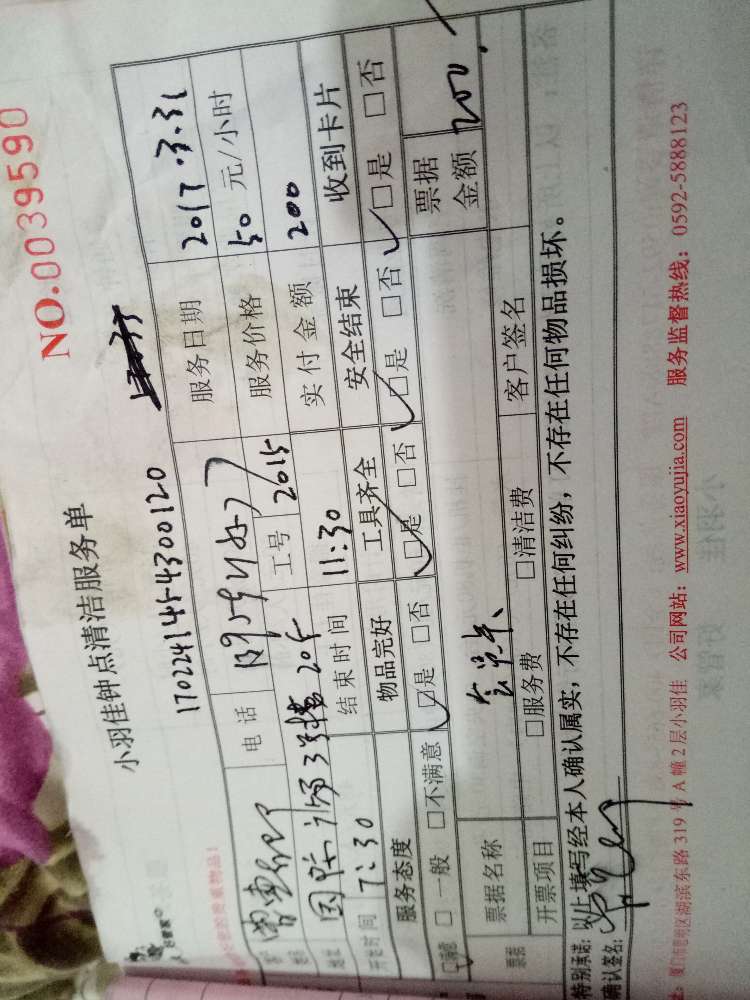 NO.0039590
小羽佳钟点清洁服务单
1702241454300120
好管家
电话
服务日期 2017.3.31
工号 2015
服务价格 50 元/小时
实付金额 200
开始时间 7:30 结束时间 11:30
服务态度 物品完好 工具齐全 安全结束 收到卡片
□满意 □一般 □不满意 □是 □否 □是 □否 □是 □否 □是 □否
票据名称 票据金额 200.
开票项目 □服务费 □清洁费 客户签名
特别承诺: 以上填写经本人确认属实，不存在任何纠纷，不存在任何物品损坏。
确认签名:
厦门市思明区湖滨东路 319 号 A 幢 2 层小羽佳 公司网站: www.xiaoyujia.com 服务监督热线: 0592-5888123